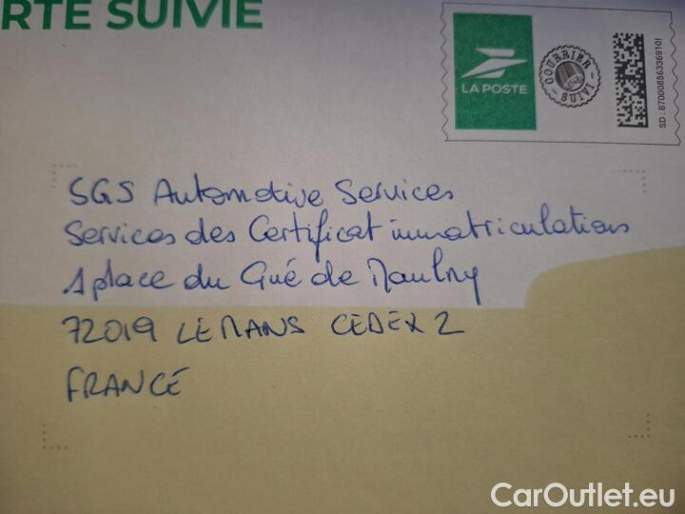 RTE SUIVIE
LA POSTE
COURRIER SUIVI
SD : 87000856336910!
SGS Automotive Services
Services des Certificat immatriculations
1 place du Gué de Maulny
72019 LE MANS CEDEX 2
FRANCE
CarOutlet.eu